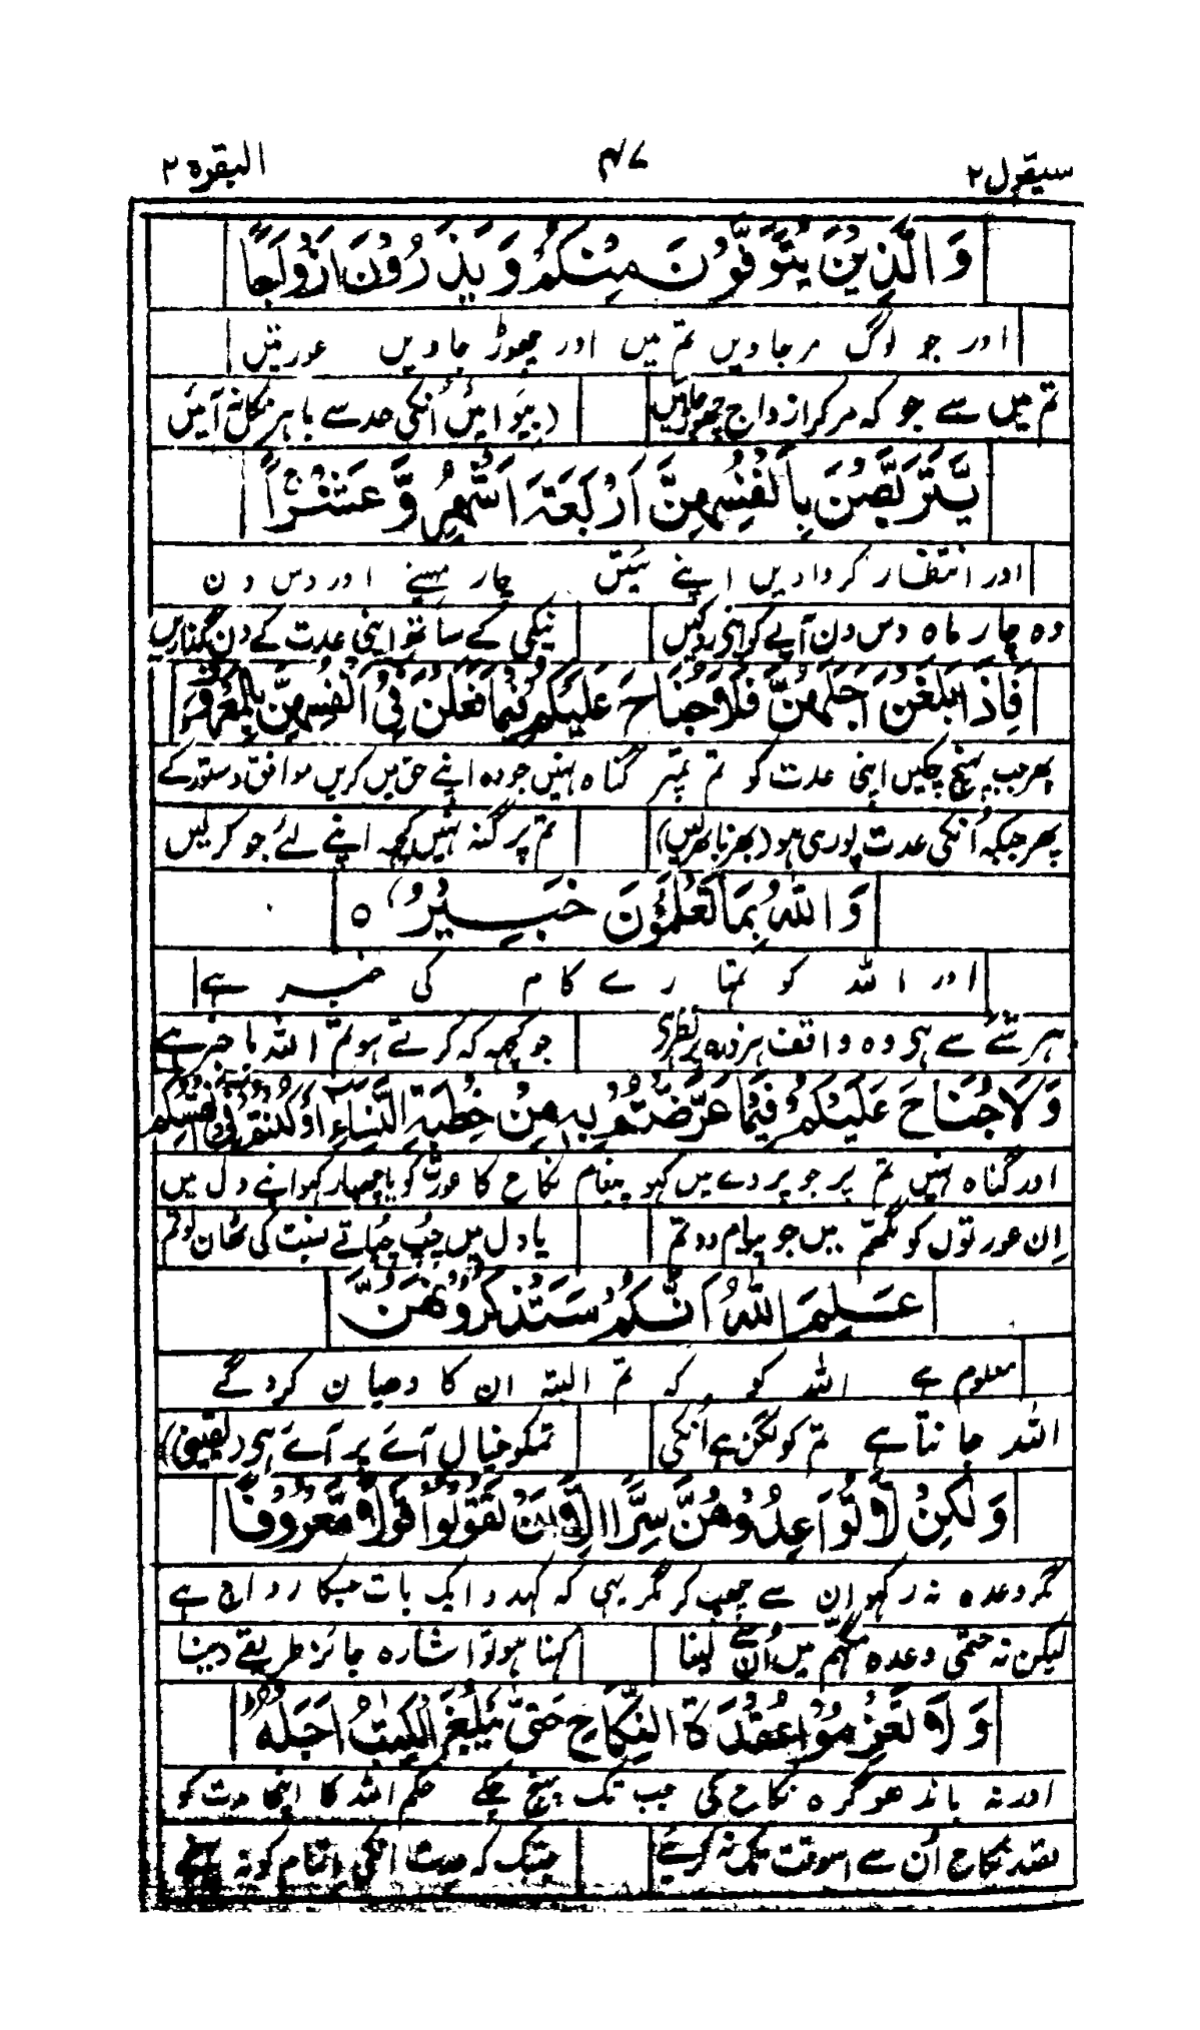 سیقول ۲ ۴۷ البقرہ ۲
وَالَّذِيْنَ يُتَوَفَّوْنَ مِنْكُمْ وَيَذَرُوْنَ اَزْوَاجًا
اور جو لوگ مرجاویں تم میں اور چھوڑ جاویں عورتیں
تم میں سے جو کہ مرکر ازدواج چھوڑ جائیں (بیوائیں اُنکی حد سے باہر نکل نہ آئیں
يَّتَرَبَّصْنَ بِاَنْفُسِهِنَّ اَرْبَعَةَ اَشْهُرٍ وَّعَشْرًا
اور انتظار کروادیں اپنے تئیں چار مہینے اور دس دن
وہ چار ماہ دس دن آپے کو اپنی روکیں نیکی کے ساتھ اپنی عدت کے دن گذاریں
فَاِذَا بَلَغْنَ اَجَلَهُنَّ فَلَا جُنَاحَ عَلَيْكُمْ فِيْمَا فَعَلْنَ فِيْٓ اَنْفُسِهِنَّ بِالْمَعْرُوْفِ
پھر جب پہنچ چکیں اپنی عدت کو تم پر گناہ نہیں جو وہ اپنے حق میں کریں موافق دستور کے
پھر جبکہ اُنکی عدت پوری ہو تم پر گنہ نہیں کچھ اپنے لئے جو کرلیں
وَاللّٰهُ بِمَا تَعْمَلُوْنَ خَبِيْرٌ ۝
اور اللہ کو تمہارے کام کی خبر ہے
ہر شئے سے ہی وہ واقف ہر ذرہ پر نظر ہی جو کچھہ کہ کرتے ہو تم اللہ باخبر ہے
وَلَا جُنَاحَ عَلَيْكُمْ فِيْمَا عَرَّضْتُمْ بِهٖ مِنْ خِطْبَةِ النِّسَآءِ اَوْ اَكْنَنْتُمْ فِيْٓ اَنْفُسِكُمْ
اور گناہ نہیں تم پر جو پردے میں کہو پیغام نکاح کا عورت کو یا چھپا رکھو اپنے دل میں
اِن عورتوں کو تم جو پیام دو تم یا دل میں چھپ چھپاتے نسبت کی ٹھان لو تم
عَلِمَ اللّٰهُ اَنَّكُمْ سَتَذْكُرُوْنَهُنَّ
معلوم ہے اللہ کو کہ تم البتہ ان کا دھیان کروگے
اللہ جانتا ہے تم کو لگن ہے اُنکی تمکو خیال آئے پر آئے ہی (یقینی)
وَلٰكِنْ لَّا تُوَاعِدُوْهُنَّ سِرًّا اِلَّآ اَنْ تَقُوْلُوْا قَوْلًا مَّعْرُوْفًا
مگر وعدہ نہ رکھو ان سے چھپ کر مگر یہی کہ کہدو ایک بات جسکا رواج ہے
لیکن نہ حتمی وعدہ میں اُن سے لینا کہنا ہو تو اشارہ جائز طریقے دینا
وَلَا تَعْزِمُوْا عُقْدَةَ النِّكَاحِ حَتّٰى يَبْلُغَ الْكِتٰبُ اَجَلَهٗ
اور نہ باندھو گرہ نکاح کی جب تک پہنچ چکے حکم اللہ کا اپنی مدت کو
عقد نکاح اُن سے اسوقت تک نہ کرئیے جبتک کہ عدت انکی اتمام کو نہ پہنچے